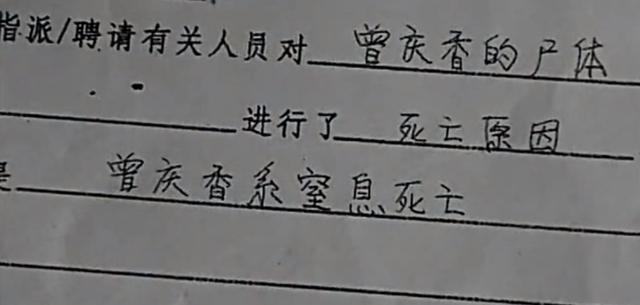 指派/聘请有关人员对 曾庆香的尸体
进行了 死亡原因
是 曾庆香系窒息死亡